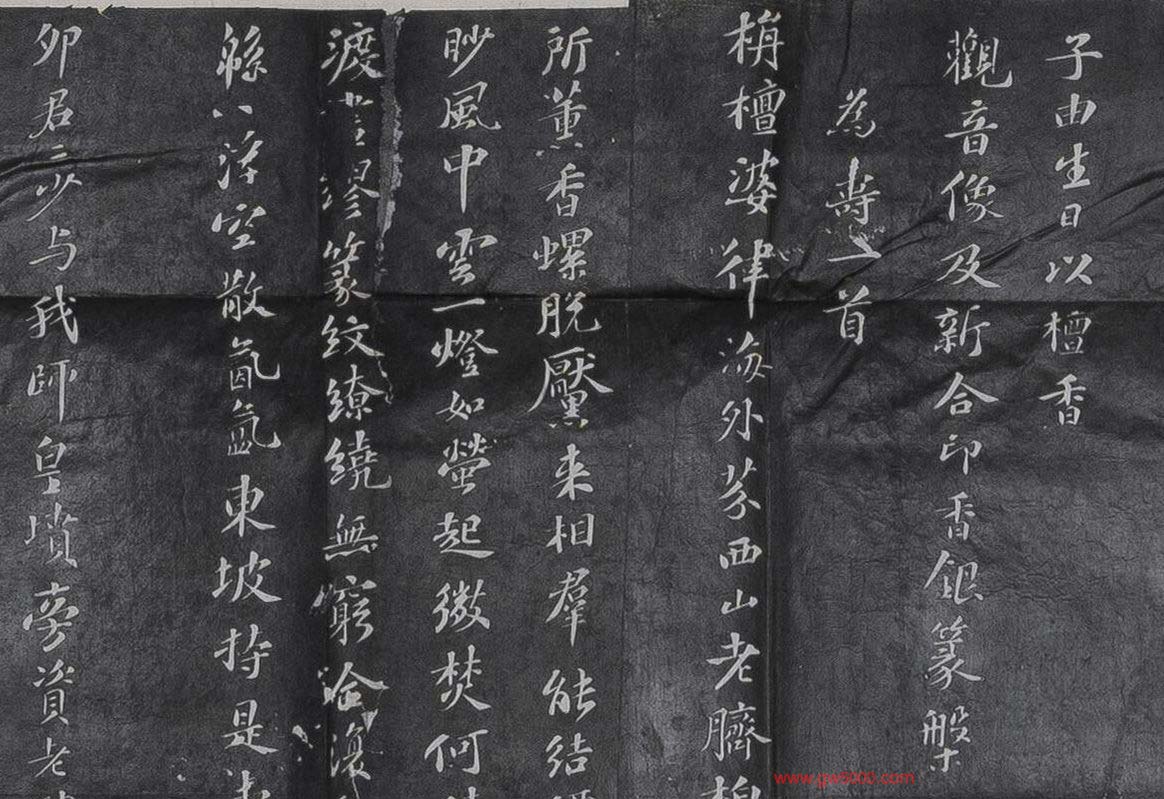 子由生日以檀香
觀音像及新合印香銀篆槃
為壽一首
栴檀婆律海外芬西山老臍柏
所薰香螺脫黶来相羣能結
眇風中雲一燈如螢起微焚何
度 繆篆紋繚繞無窮合復
緜 浮空散氤氳東坡持是
卯君君少与我師皇墳旁資老
www.gw5000.com